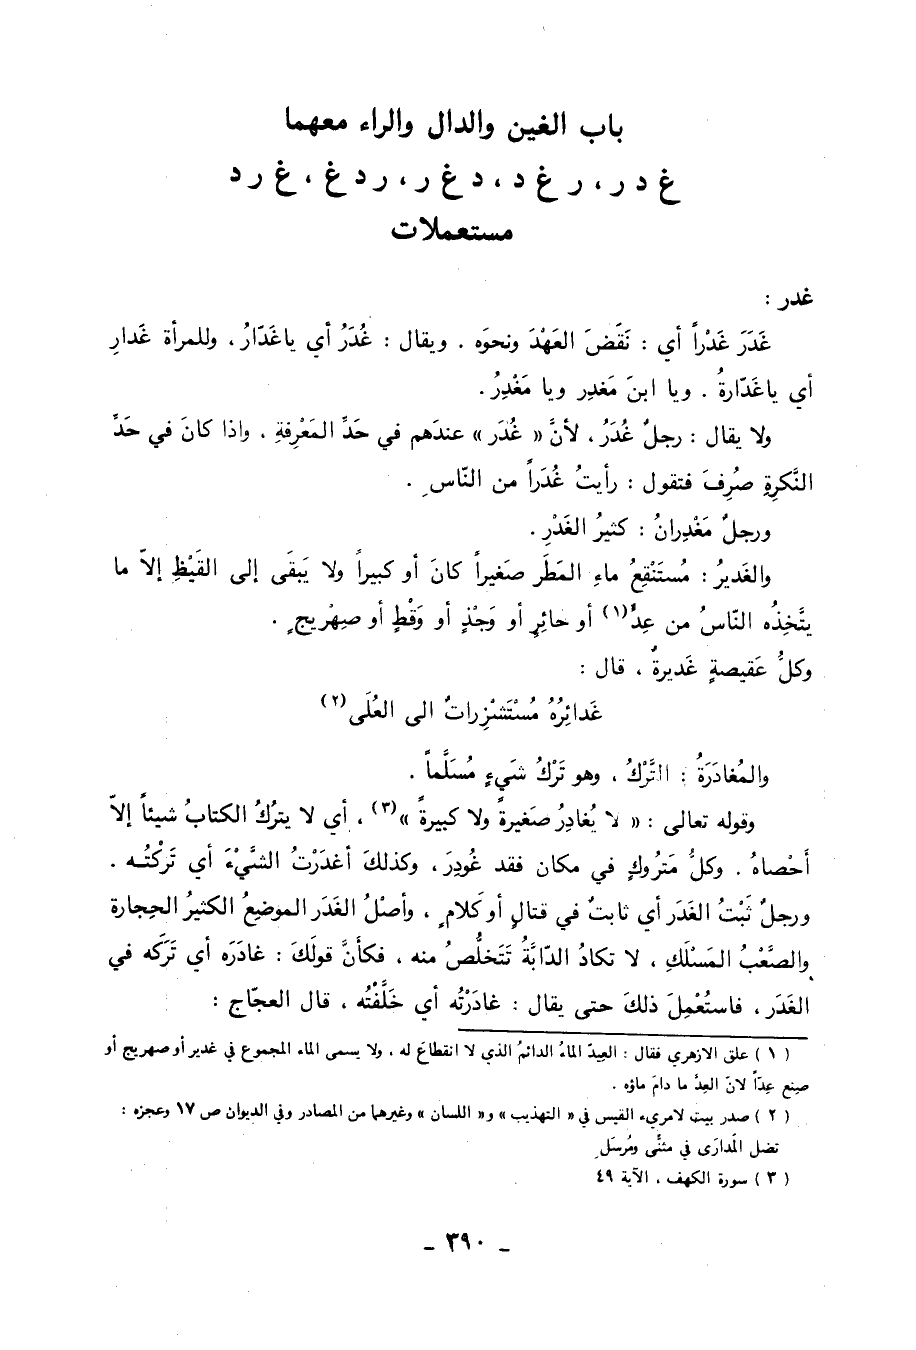 باب الغين والدال والراء معهما
غ د ر، ر غ د، د غ ر، ر د غ، غ ر د
مستعملات
غدر :
غَدَرَ غَدْراً أي : نَقَضَ العَهْدَ ونحوَه . ويقال : غُدَرُ أي ياغَدّارُ، وللمرأة غَدارِ
أي ياغَدّارةُ . ويا ابنَ مَغدِر ويا مَغْدِرُ.
ولا يقال : رجلٌ غُدَرُ، لأنَّ « غُدَر» عندَهم في حَدِّ المَعْرِفةِ . واذا كانَ في حَدِّ
النَّكرةِ صُرِفَ فتقول : رأيتُ غُدَراً من النّاسِ .
ورجلٌ مَغْدِرانُ : كثيرُ الغَدْرِ.
والغَديرُ : مُستَنْقِعُ ماءِ المَطَر صَغيراً كانَ أو كبيراً ولا يَبقَى إلى القَيْظِ إلاّ ما
يتَّخِذُه النّاسُ من عِدٍّ(١) أو حائِرٍ أو وَجْذٍ أو وَقْطٍ أو صِهْريجٍ .
وكلُّ عَقيصةٍ غَديرةٌ ، قال :
غَدائِرُهُ مُسْتَشْزِراتٌ الى العُلَى(٢)
والمُغادَرَةُ : التَّرْكُ ، وهو تَرْكُ شَيءٍ مُسَلَّماً .
وقوله تعالى : « لا يُغادِرُ صَغيرةً ولا كبيرةً »(٣) ، أي لا يترُكُ الكتابُ شيئاً إلاّ
أَحْصاهُ . وكلُّ مَتروكٍ في مكان فقد غُودِرَ، وكذلكَ أغدَرْتُ الشَّيْءَ أي تَرَكْتُه .
ورجلٌ ثَبْتُ الغَدَر أي ثابتٌ في قتالٍ أو كَلامٍ ، وأصْلُ الغَدَر الموضِعُ الكثيرُ الحِجارة
والصَّعْبُ المَسْلَكِ ، لا تكادُ الدّابَّةُ تَتَخلَّصُ منه ، فكأنَّ قولَكَ : غادَرَه أي تَرَكَه في
الغَدَر، فاستُعْمِلَ ذلكَ حتى يقال : غادَرْتُه أي خَلَّفْتُه ، قال العجّاج :
( ١ ) علق الازهري فقال : العِدّ الماءُ الدائمُ الذي لا انقطاعَ له ، ولا يسمى الماء المجموع في غدير أو صهريج أو
صِنع عِدّاً لانّ العِدَّ ما دامَ ماؤه .
( ٢ ) صدر بيت لامريء القيس في « التهذيب » و« اللسان » وغيرهما من المصادر وفي الديوان ص ١٧ وعجزه :
تضل المَدارَى في مثنًّى ومُرسَلِ
( ٣ ) سورة الكهف ، الآية ٤٩
ـ ٣٩٠ ـ